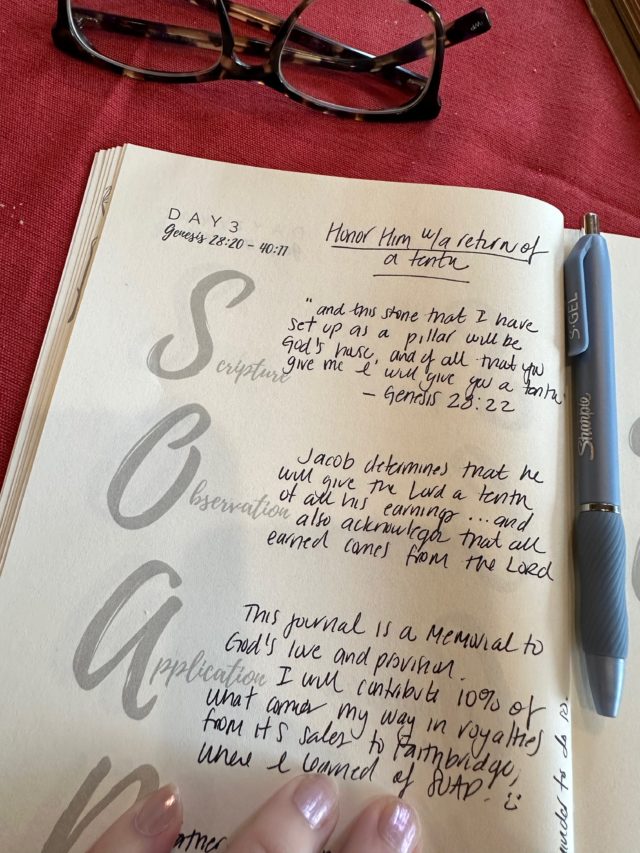 DAY 3
Genesis 28:20 - 40:17
Honor Him w/a return of
a tenth
Scripture
"and this stone that I have
set up as a pillar will be
God's huse, and of all that you
give me I will give you a tenth"
- Genesis 28:22
Observation
Jacob determines that he
will give the Lord a tenth
of all his earnings ... and
also acknowledges that all
earned comes from the Lord
Application
This journal is a memorial to
God's love and provision.
I will contribute 10% of
what comes my way in royalties
from its sales to Faithbridge,
where I learned of SOAP. :)
ather
to do so.
S·GEL
Sharpie